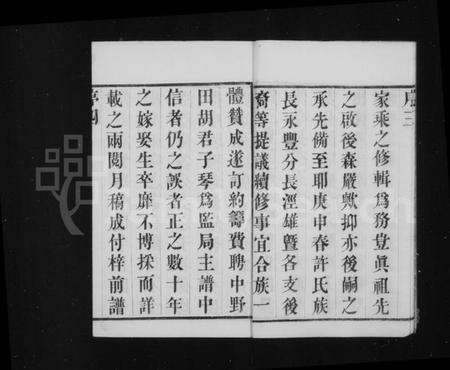 序三
家乘之修輯爲務豈眞祖先
之啟後森嚴歟抑亦後嗣之
承先備至耶庚申春許氏族
長永豐分長涇雄暨各支後
裔等提議續修事宜合族一
體贊成遂訂約籌費聘中野
田胡君子琴爲監局主譜中
信者仍之誤者正之數十年
之嫁娶生卒靡不博採而詳
載之兩閱月稿成付梓前譜